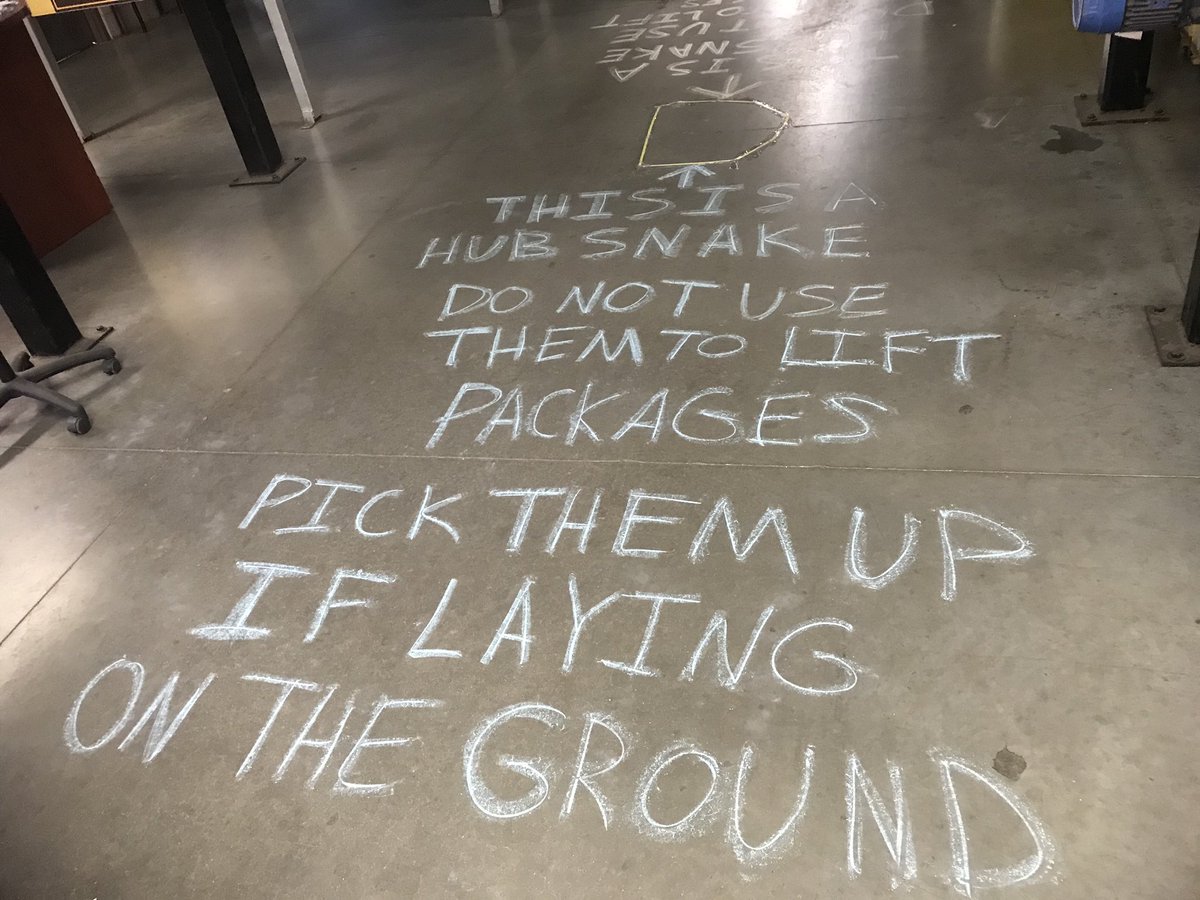 THIS IS A
HUB SNAKE
DO NOT USE
THEM TO LIFT
PACKAGES
PICK THEM UP
IF LAYING
ON THE GROUND
IS A
SNAKE
USE
LIFT